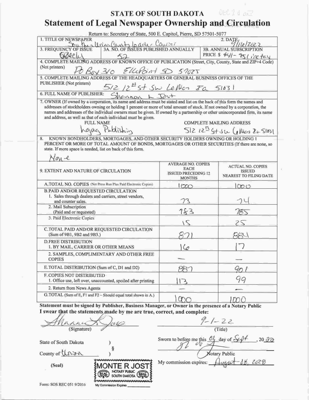 STATE OF SOUTH DAKOTA
Statement of Legal Newspaper Ownership and Circulation
Return to: Secretary of State, 500 E. Capitol, Pierre, SD 57501-5077
1. TITLE OF NEWSPAPER
2. DATE
3. FREQUENCY OF ISSUE
3A. NO. OF ISSUES PUBLISHED ANNUALLY
3B. ANNUAL SUBSCRIPTION
PRICE $
52
4. COMPLETE MAILING ADDRESS OF KNOWN OFFICE OF PUBLICATION (Street, City, County, State and ZIP+4 Code)
(Not printers)
PO Box 310 Elk Point SD 57025
5. COMPLETE MAILING ADDRESS OF THE HEADQUARTERS OF GENERAL BUSINESS OFFICES OF THE
PUBLISHER (Not printers)
512 12th St SW LeMars IA 51031
6. FULL NAME OF PUBLISHER:
7. OWNER (If owned by a corporation, its name and address must be stated and list on the back of this form the names and
addresses of stockholders owning or holding 1 percent or more of total amount of stock. If not owned by a corporation, the
names and addresses of the individual owners must be given. If owned by a partnership or other unincorporated firm, its name
and address, as well as that of each individual must be given.
FULL NAME
COMPLETE MAILING ADDRESS
Publishing
512 12th St SW LeMars IA 51031
8. KNOWN BONDHOLDERS, MORTGAGEES, AND OTHER SECURITY HOLDERS OWNING OR HOLDING 1
PERCENT OR MORE OF TOTAL AMOUNT OF BONDS, MORTGAGES OR OTHER SECURITIES (If there are none, so
state. If more space is needed, list on back of this form)
None
9. EXTENT AND NATURE OF CIRCULATION
AVERAGE NO. COPIES
EACH
ISSUED PRECEDING 12
MONTHS
ACTUAL NO. COPIES
ISSUED
NEAREST TO FILING DATE
A. TOTAL NO. COPIES
1000 1000
B. PAID AND/OR REQUESTED CIRCULATION
1. Sales through dealers and carriers, street vendors,
and counter sales.
73 74
2. Mail Subscription
(Paid and or requested)
783 785
3. Paid Electronic Copies
15 25
C. TOTAL PAID AND/OR REQUESTED CIRCULATION
(Sum of 9B1, 9B2 and 9B3.)
871 884
D. FREE DISTRIBUTION
1. BY MAIL, CARRIER OR OTHER MEANS
16 17
2. SAMPLES, COMPLIMENTARY AND OTHER FREE
COPIES
E. TOTAL DISTRIBUTION (Sum of C, D1 and D2)
887 901
F. COPIES NOT DISTRIBUTED
1. Office use, left over, unaccounted, spoiled after printing
113 99
2. Return from News Agents
G. TOTAL (Sum of E, F1 and F2 - Should equal total shown in A.)
1000 1000
Statement must be signed by Publisher, Business Manager, or Owner in the presence of a Notary Public
I swear that the statements made by me are true, correct, and complete:
9-1-22
(Signature)
(Title)
State of South Dakota )
Sworn to before me this day of Sept, 20
§
County of Union )
Notary Public
(Seal)
My commission expires:
MONTE R JOST
NOTARY PUBLIC
SOUTH DAKOTA
My Commission Expires